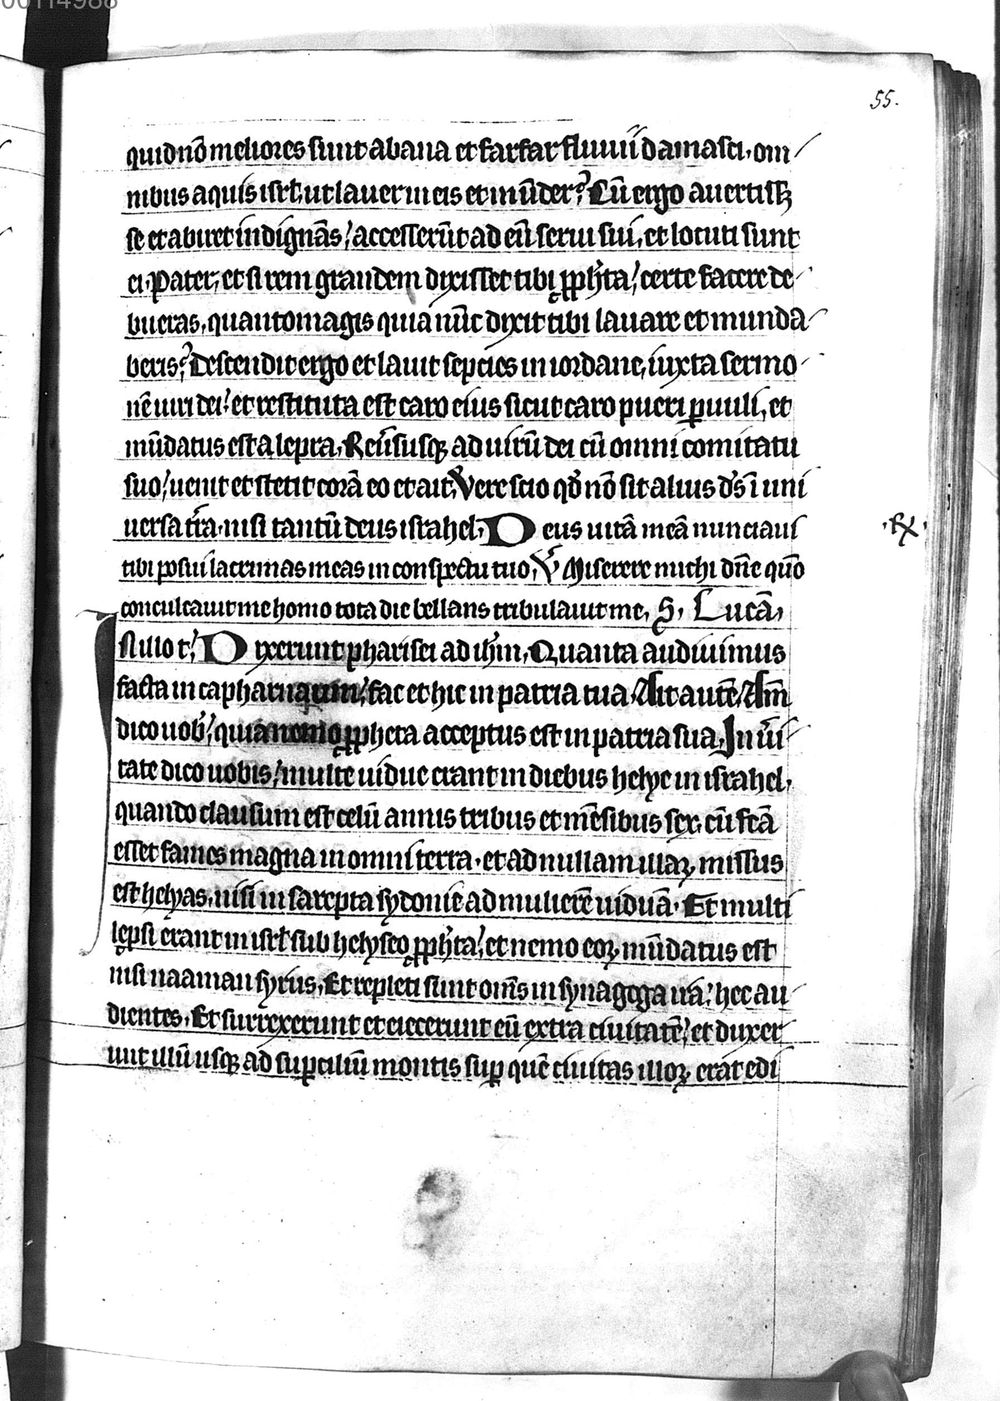 00114988
55.
quid nō meliores sunt abana et farfar fluuii damasci, om
nibus aquis isrl̄, ut lauer in eis et mūder? Cū ergo auertissꝫ
se et abiret indignās, accesserūt ad eū serui sui, et locuti sunt
ei. Pater, et si rem grandem dixisset tibi ꝓph̄ta, certe facere de
bueras, quanto magis quia nūc dixit tibi lauare et munda
beris? Descendit ergo et lauit septies in iordane, iuxta sermo
nē uiri dei, et restituta est caro eius sicut caro pueri ꝑuuli, et
mūdatus est a lepra, Reūsusqꝫ ad uirū dei cū omni comitatu
suo, uenit et stetit corā eo et ait, Vere scio qd̄ nō sit alius ds̄ ī uni
uersa tr̄a, nisi tantū deus israhel, Deus uitā meā nunciaui
℟
tibi posui lacrimas meas in conspectu tuo, ℣ Miserere michi dn̄e qm̄o
conculcauit me homo tota die bellans tribulauit me, S. Lucā,
In illo t̄, Dixerunt pharisei ad ih̄m, Quanta audiuimus
facta in capharnaum, fac et hic in patria tua, Ait autē, Am̄
dico uob̄, quia nemo ꝓpheta acceptus est in patria sua, In ūi
tate dico uobis, multe uidue erant in diebus helye in israhel,
quando clausum est celū annis tribus et mēsibus sex, cū fc̄a
esset fames magna in omni terra, et ad nullam illaꝝ missus
est helyas, nisi in sarepta sydonie ad mulierē uiduā. Et multi
lepsi erant in isrl̄ sub helyseo ꝓph̄ta, et nemo eoꝝ mūdatus est
nisi naaman syrus, Et repleti sunt om̄s in synagoga irā, hec au
dientes, Et surrexerunt et eiecerunt eū extra ciuitatē, et duxer
unt illū usqꝫ ad suꝑciliū montis suꝑ quē ciuitas illoꝝ erat edi